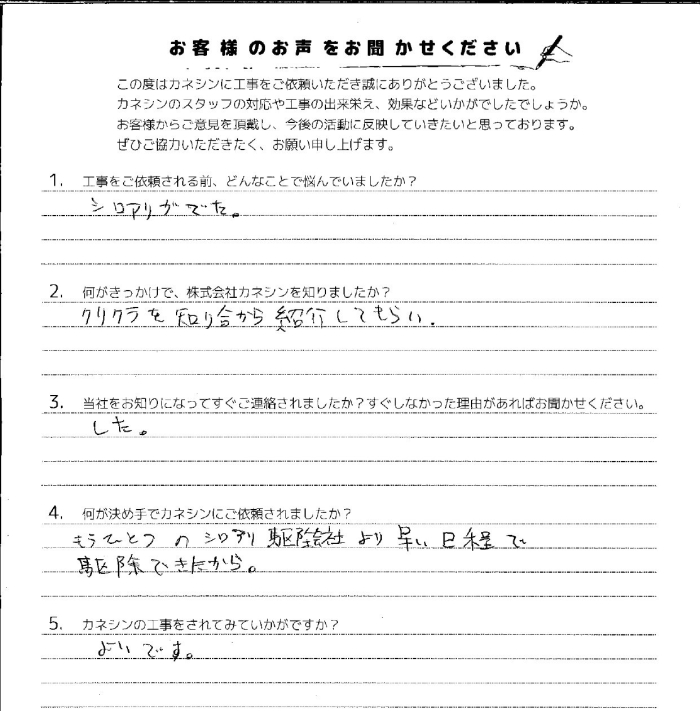 お客様のお声をお聞かせください
この度はカネシンに工事をご依頼いただき誠にありがとうございました。
カネシンのスタッフの対応や工事の出来栄え、効果などいかがでしたでしょうか。
お客様からご意見を頂戴し、今後の活動に反映していきたいと思っております。
ぜひご協力いただきたく、お願い申し上げます。
1. 工事をご依頼される前、どんなことで悩んでいましたか？
シロアリがでた。
2. 何がきっかけで、株式会社カネシンを知りましたか？
クリクラを知り合から紹介してもらい.
3. 当社をお知りになってすぐご連絡されましたか？すぐしなかった理由があればお聞かせください。
した。
4. 何が決め手でカネシンにご依頼されましたか？
もうひとつのシロアリ駆除会社より早い日程で
駆除できたから。
5. カネシンの工事をされてみていかがですか？
よいです。